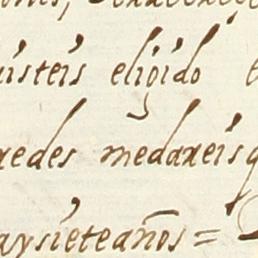 uisteis elijido
redes medareis q
aysieteaños =